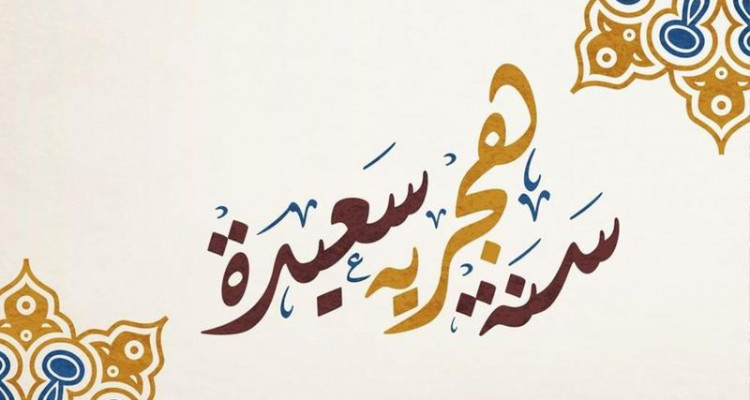 سنة هجريه سعيدة